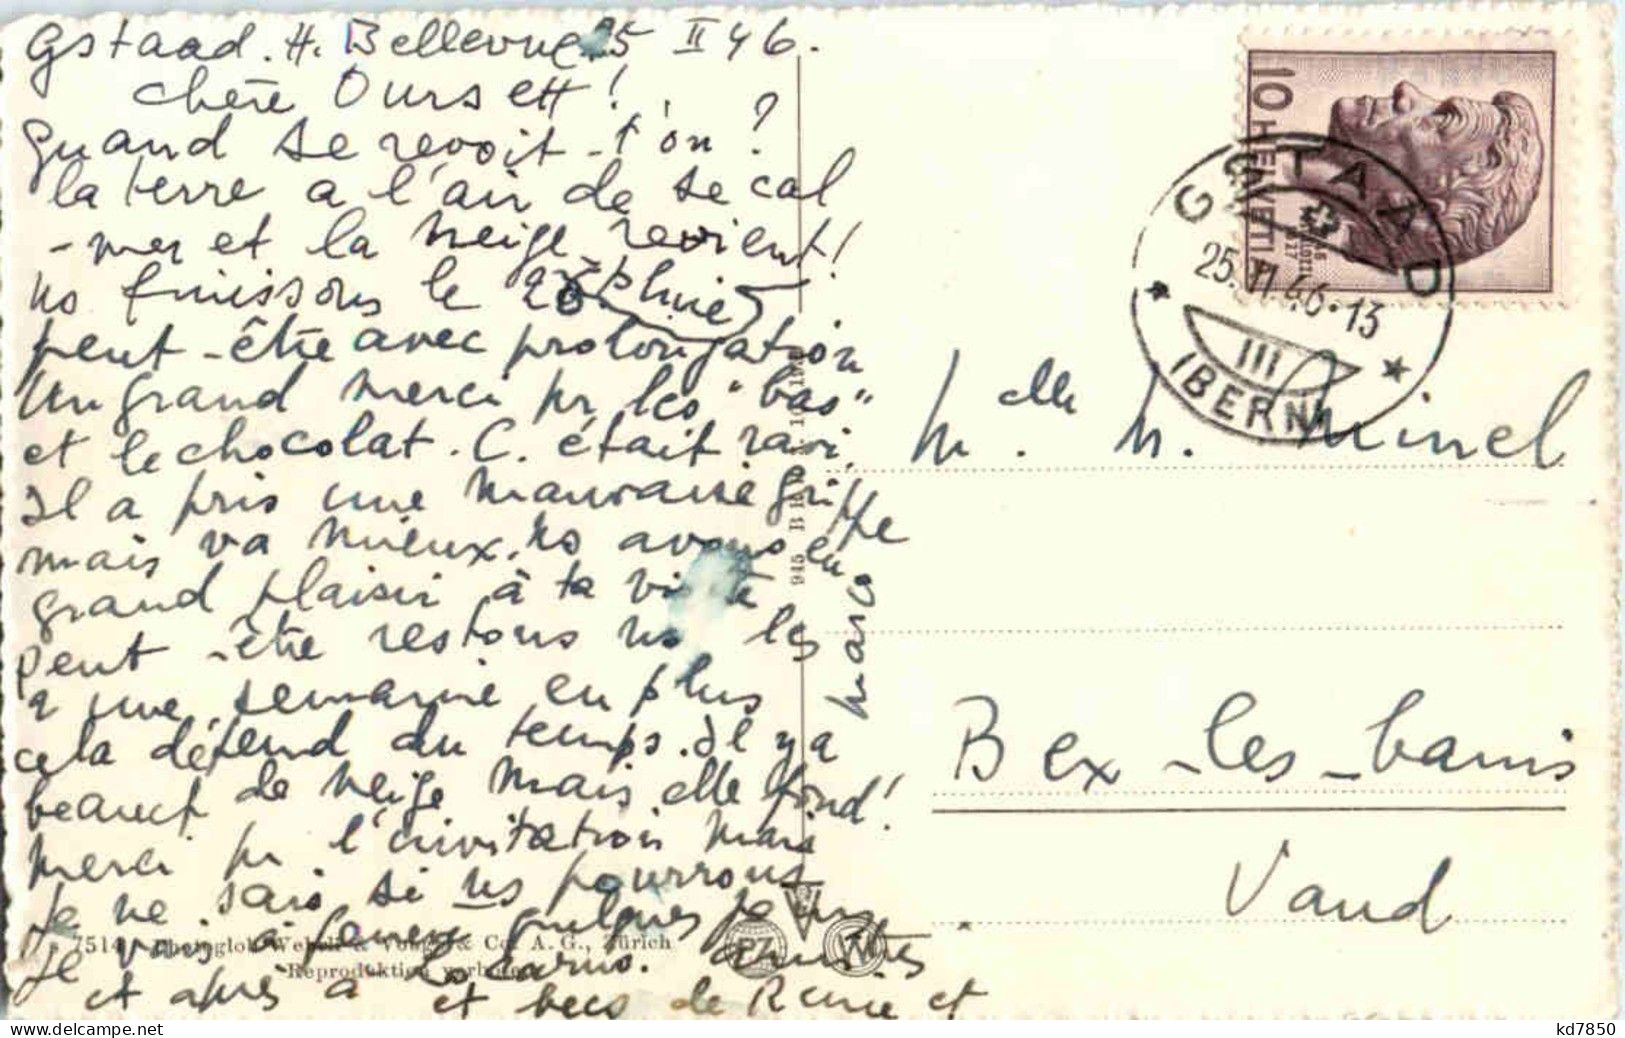 Gstaad. H. Bellevue 25 II 46.
chère Oursett!
Quand se revoit-t'on?
la terre a l'air de se cal
-mer et la neige revient!
ns finissons le 28
peut-être avec prolongation
Un grand merci pr les "bas"
et le chocolat. C. était ravi.
Il a pris une mauvaise grippe
mais va mieux. ns avons eu
grand plaisir à ta visite
peut-être restons ns les
2 une semaine en plus
cela défend du temps. Il y a
beauct de neige mais elle fond!
merci pr l'invitation mais
je ne sais si ns pourrons
Je vais à quelques jours
et après à Locarno. amitiés
et becs de Renée et
Marco
7514 Photoglob-Wehrli & Vouga & Co. A. G., Zürich
Reproduktion verboten
PZ
W
10 HELVETIA
GSTAAD
25. II. 46-13
III
(BERN)
Mlle. M. Minel
Bex-les-bains
Vaud
kd7850